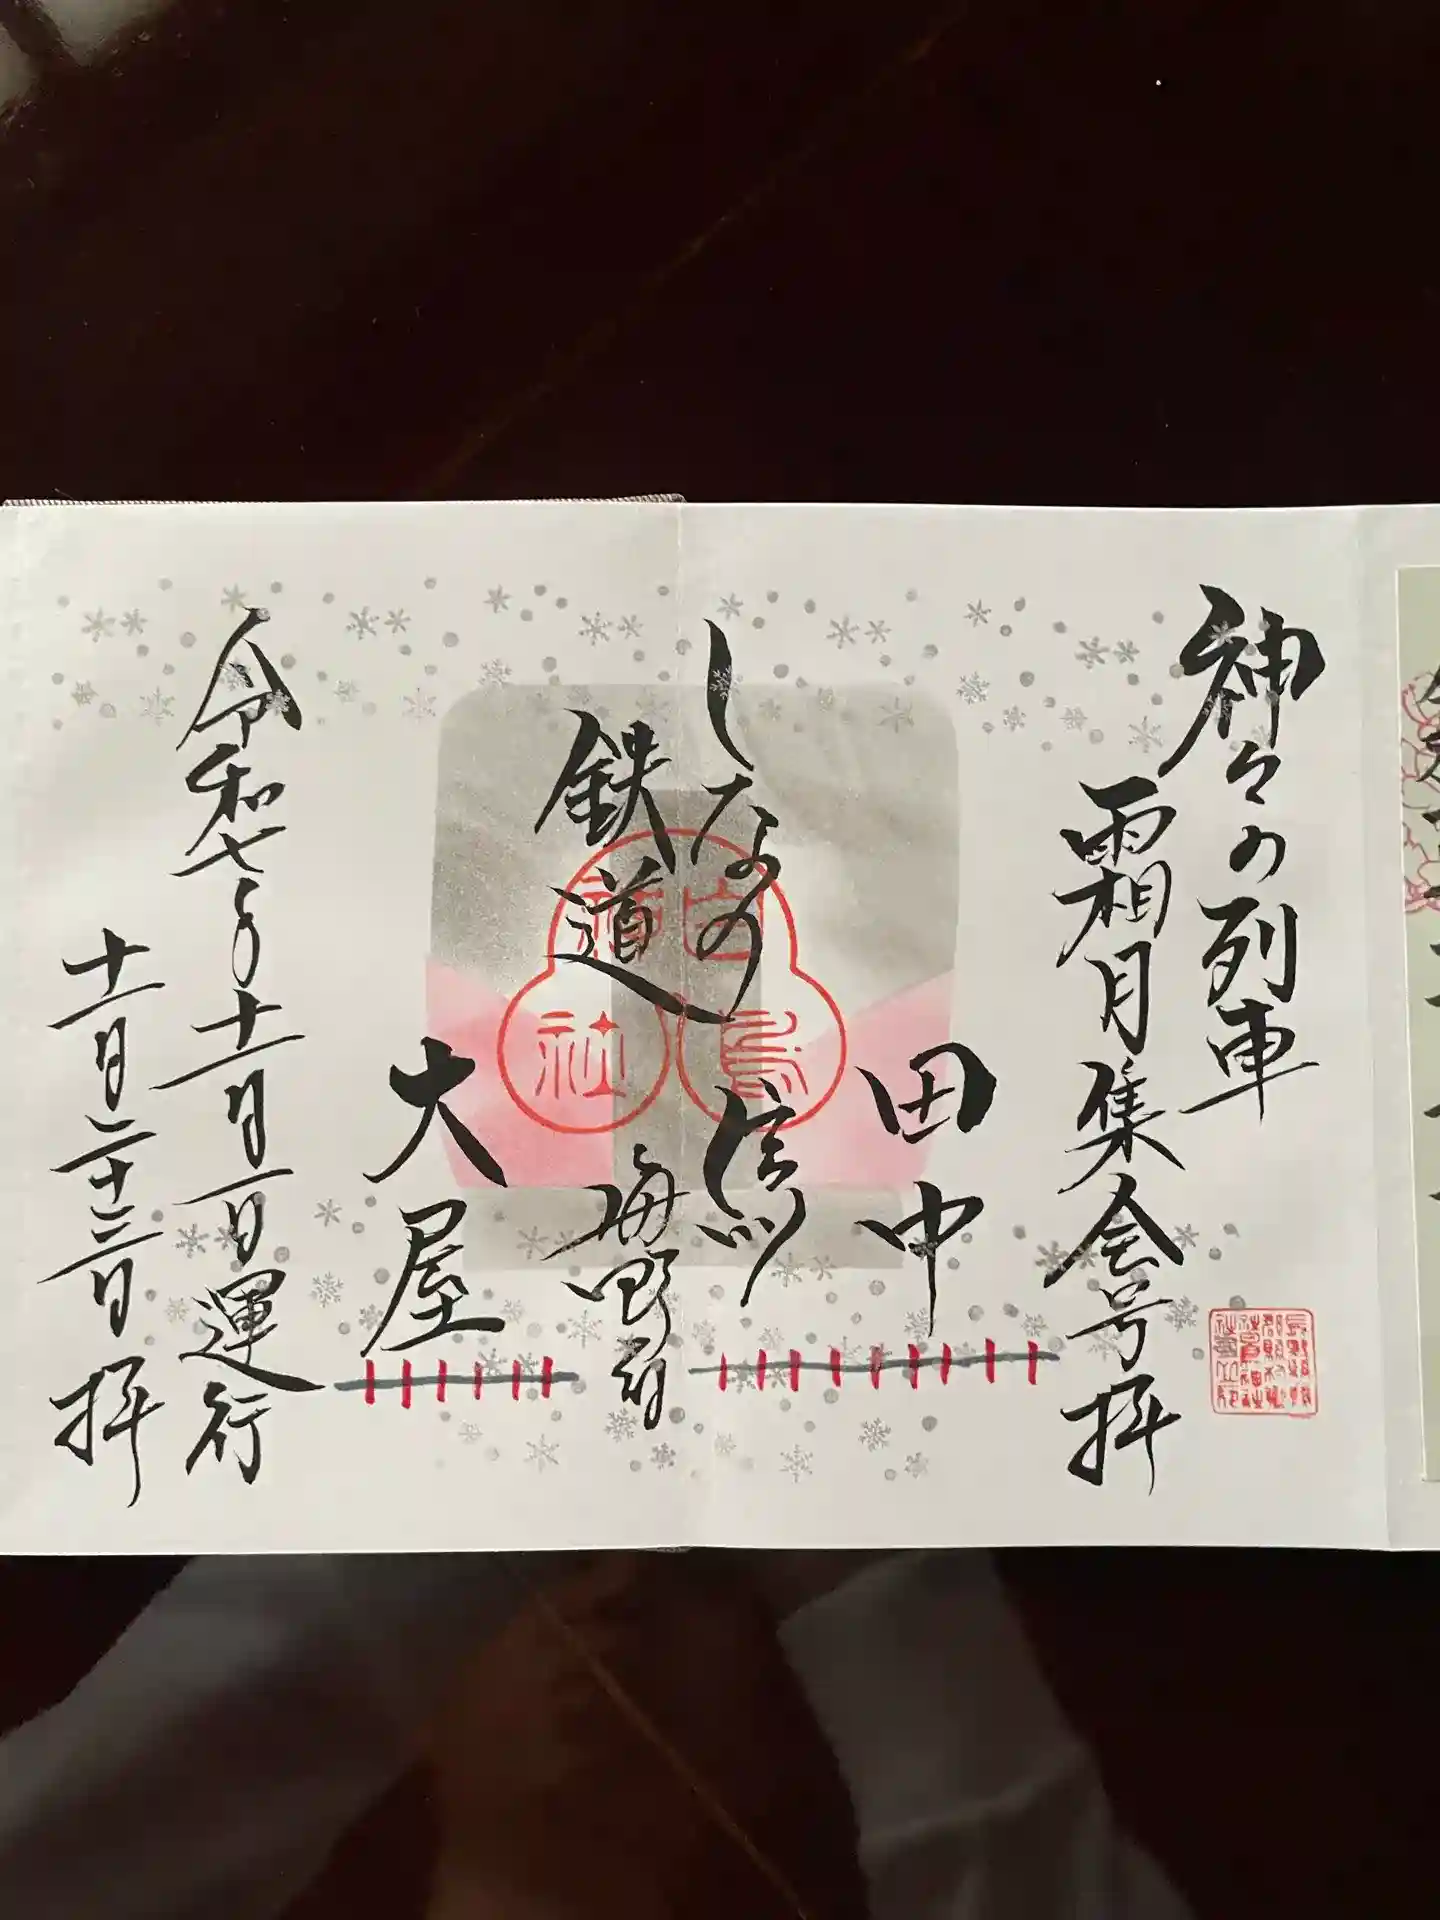 神々の列車
霜月集会号拝
田中
しなの
鉄道
信濃
海野宿
大屋
令和七年十一月一日運行
十一月二十三日拝
神社